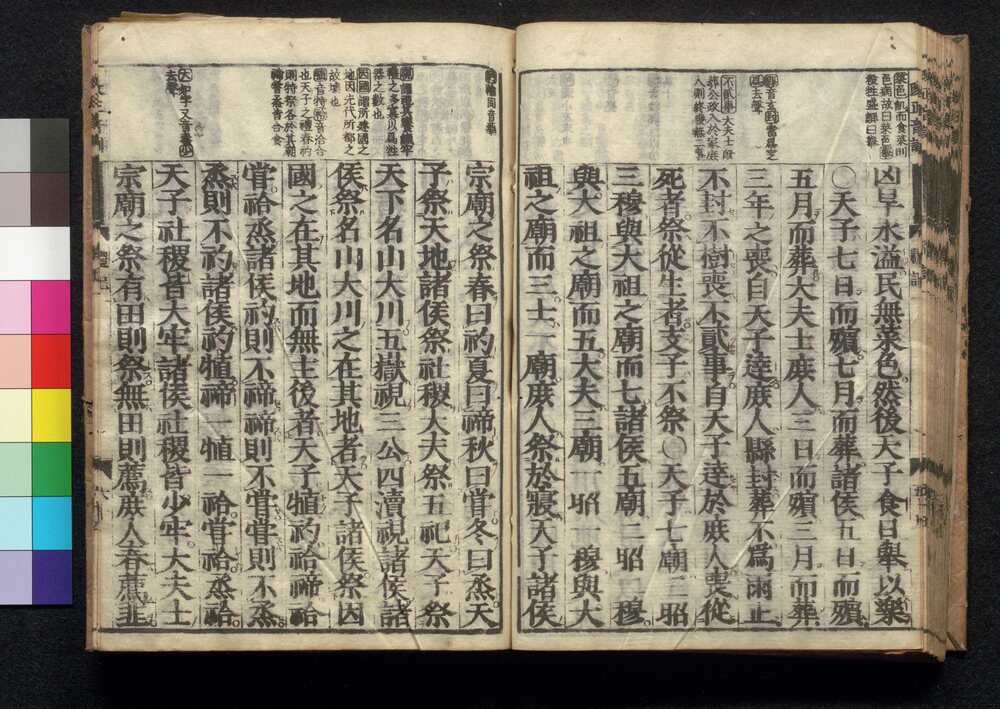 菜色飢而食菜則
不貳事大夫士既
葬公政入於家庭
凶旱水溢民無菜色然後天子食日舉以樂
〇天子七日而殯七月而葬諸侯五日而殯
五月而葬大夫士庶人三日而殯三月而葬
三年之喪自天子達庶人縣封葬不爲雨止
不封不樹喪不貳事自天子達於庶人喪從
死者祭從生者支子不祭〇天子七廟三昭
三穆與大祖之廟而七諸侯五廟二昭二穆
與大祖之廟而五大夫三廟一昭一穆與大
祖之廟而三士一廟庶人祭於寢天子諸侯
器之數也
因國謂所建國之
地因先代所都之
故墟也
也天子之禮春礿
則特祭各於其廟
去聲
宗廟之祭春曰礿夏曰禘秋曰嘗冬曰烝天
子祭天地諸侯祭社稷大夫祭五祀天子祭
天下名山大川五嶽視三公四瀆視諸侯諸
侯祭名山大川之在其地者天子諸侯祭因
國之在其地而無主後者天子犆礿祫禘祫
嘗祫烝諸侯礿則不禘禘則不嘗嘗則不烝
烝則不礿諸侯礿犆禘一犆一祫嘗祫烝祫
天子社稷皆大牢諸侯社稷皆少牢大夫士
宗廟之祭有田則祭無田則薦庶人春薦韭